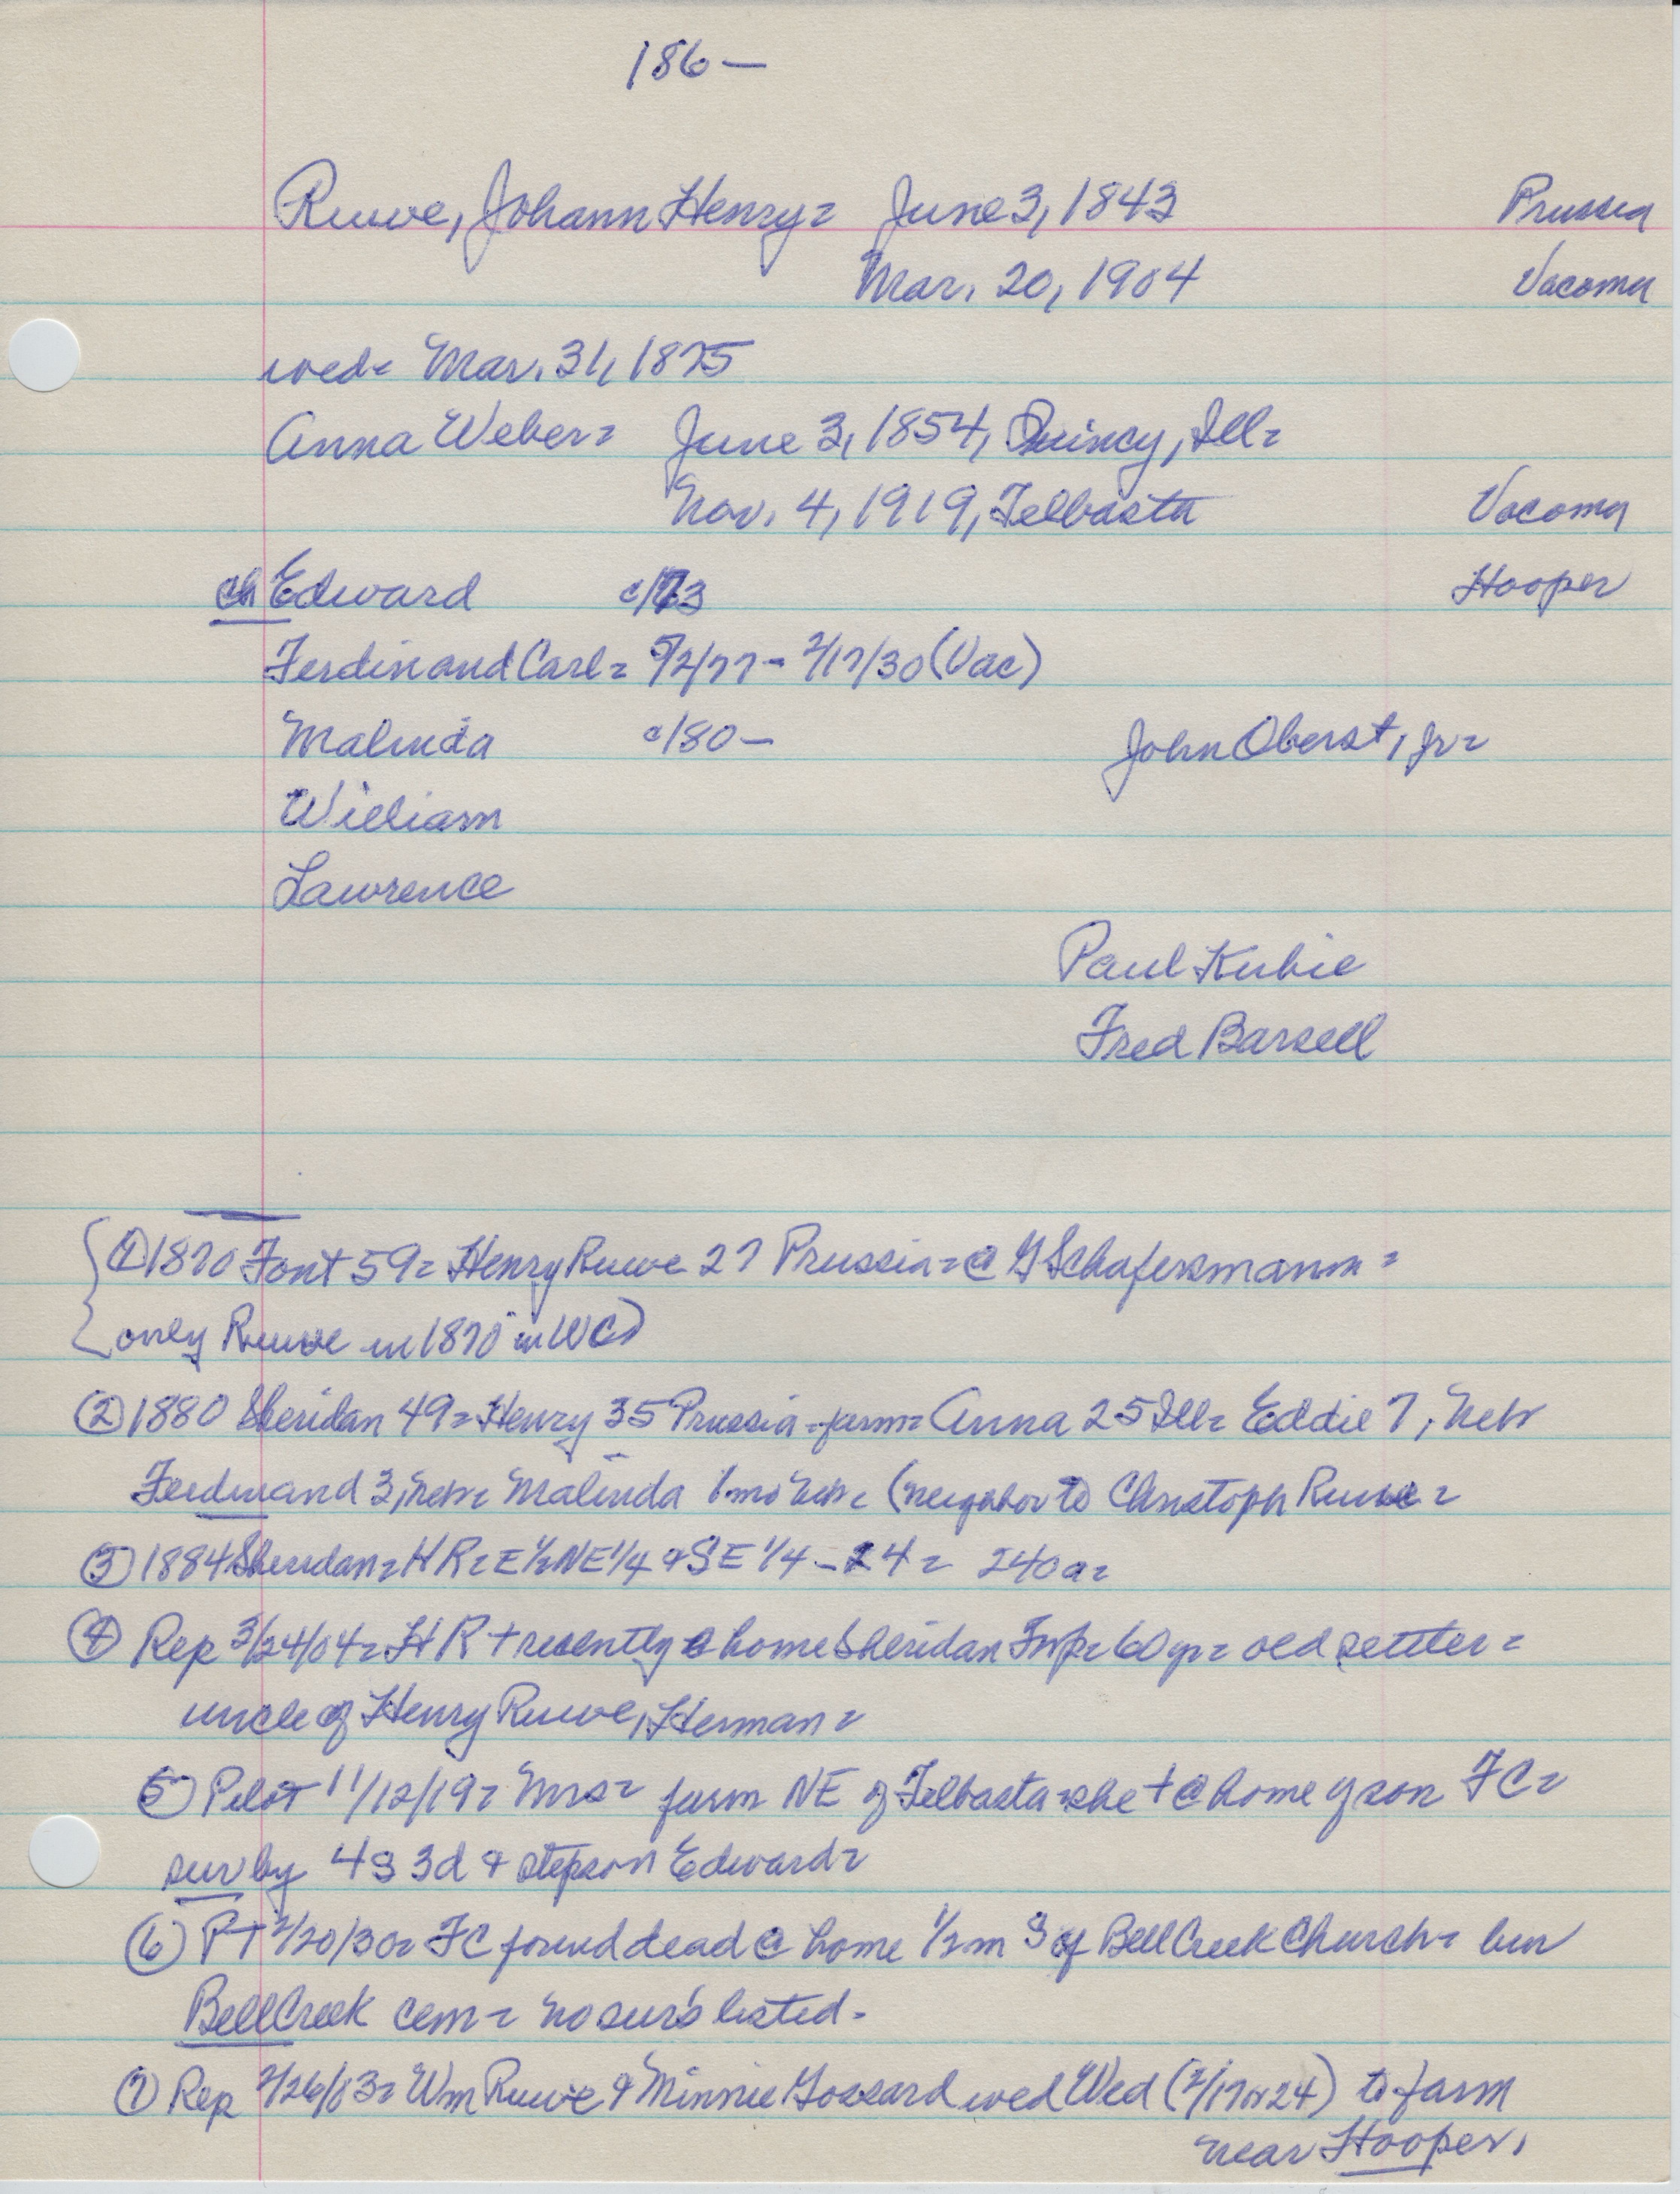 186 —
Ruwe, Johann Henry = June 3, 1843 Prussia
Mar. 20, 1904 Vacoma
wed = Mar. 31, 1875
Anna Weber = June 3, 1854, Quincy, Ill =
Nov. 4, 1919, Telbasta Vacoma
ch Edward c/73 Hooper
Ferdinand Carl = 5/2/77 - 2/17/30 (Vac)
Malinda c/80 — John Oberst, Jr =
William
Lawrence
Paul Kubie
Fred Barsell
① 1870 Font 59 = Henry Ruwe 27 Prussia = @ G Schafersmann =
only Ruwe in 1870 in WC)
② 1880 Sheridan 49 = Henry 35 Prussia - farm = Anna 25 Ill = Eddie 7, Nebr
Ferdinand 3, Nebr = Malinda 1 mo Nebr = (neighbor to Christoph Ruwe =
③ 1884 Sheridan = H R = E 1/2 NE 1/4 & SE 1/4 - 24 = 240 a =
④ Rep 3/24/04 = H R + recently @ home Sheridan Twp = 60 yr = old settler =
uncle of Henry Ruwe, Herman =
⑤ Pilot 11/12/19 = Mrs = farm NE of Telbasta = she + @ home of son F C =
sur by 4 s 3 d & stepson Edward =
⑥ PT 2/20/30 = FC found dead @ home 1/2 m S of Bell Creek Church = bur
Bell Creek cem = no sur's listed -
⑦ Rep 2/26/03 = Wm Ruwe & Minnie Gossard wed Wed (2/17 or 24) to farm
near Hooper.